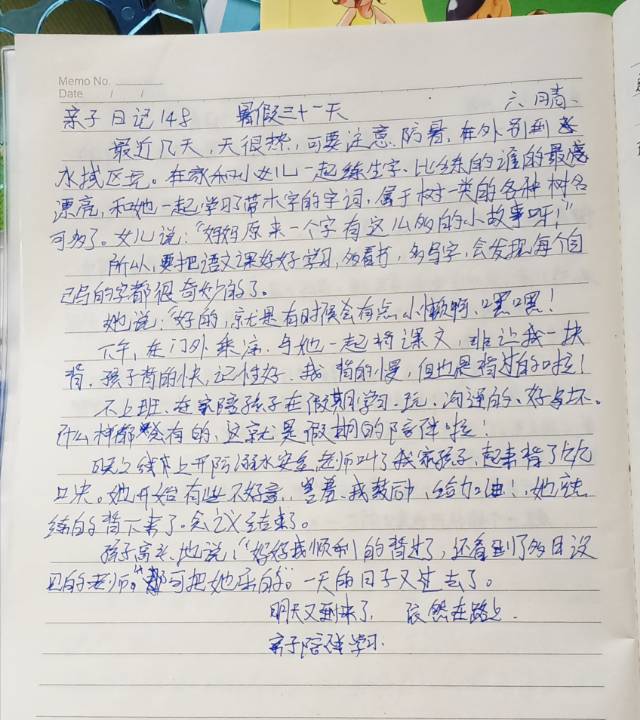 Memo No.
Date / /
亲子日记148 暑假三十一天 六 晴、
最近几天,天很热,可要注意防暑,在外别到
水域区玩。在家和小女儿一起练生字、比练的谁的最
漂亮,和她一起学习了带木字的字词,属于树一类的各种树名
可多了。女儿说:“妈妈原来一个字有这么多的的小故事呀!”
所以,要把语文课好好学习,多看书,多写字,会发现每个自
己写的字都很奇妙的了。
她说:“好的,就是有时候会有点小懒啊、嘿嘿!
下午,在门外乘凉、与她一起背课文,非让我一块
背,孩子背的快,记性好、我背的慢,但也是背过的啦!
不上班、在家陪孩子在假期学习、玩、沟通的、好与坏。
什么样都会有的,这就是假期的陪伴啦!
线上开防溺水安全,老师叫了我家孩子,起来背了六
口决。她开始有些不好意,害羞、我鼓励,给加油!,她
练的背下来了。会议结束了。
孩子高兴、地说,“妈妈我顺利的背过了,还看到了多日没
见的老师。”可把她乐的。一天的日子又过去了。
明天又到来了, 依然在路上.
亲子陪伴学习.